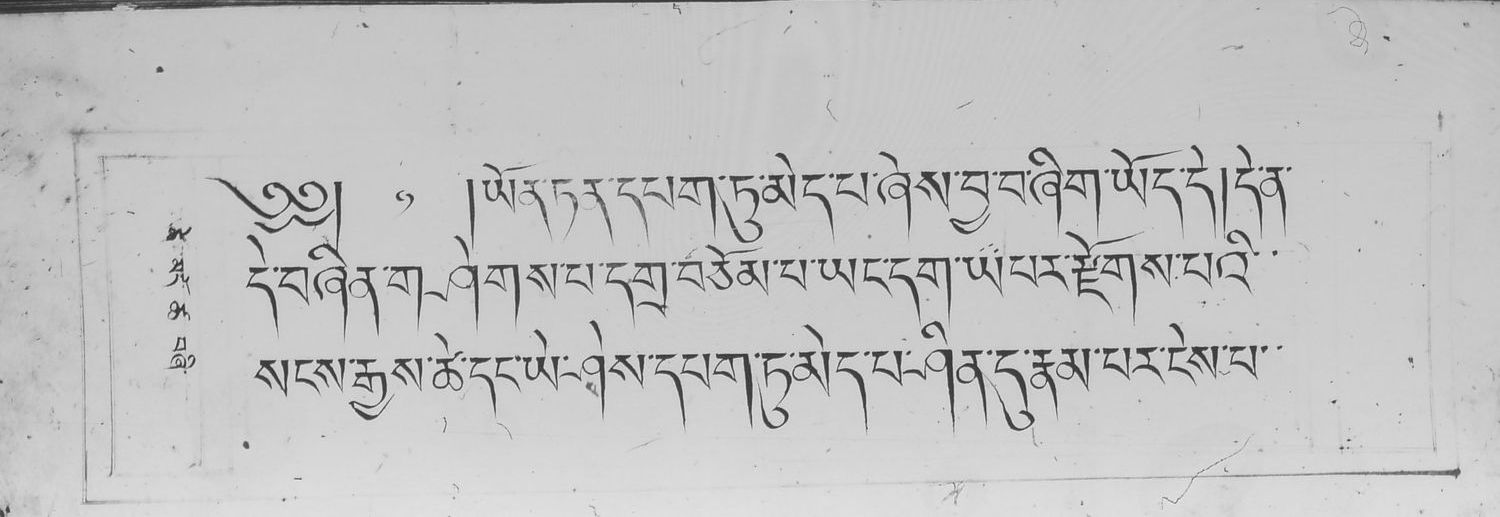 ༄༅། ། །ཡོན་ཏན་དཔག་ཏུ་མེད་པ་ཞེས་བྱ་བ་ཞིག་ཡོད་དེ། དེ་ན་
དེ་བཞིན་གཤེགས་པ་དགྲ་བཅོམ་པ་ཡང་དག་པར་རྫོགས་པའི་
སངས་རྒྱས་ཚེ་དང་ཡེ་ཤེས་དཔག་ཏུ་མེད་པ་ཤིན་དུ་རྣམ་པར་ངེས་པ་